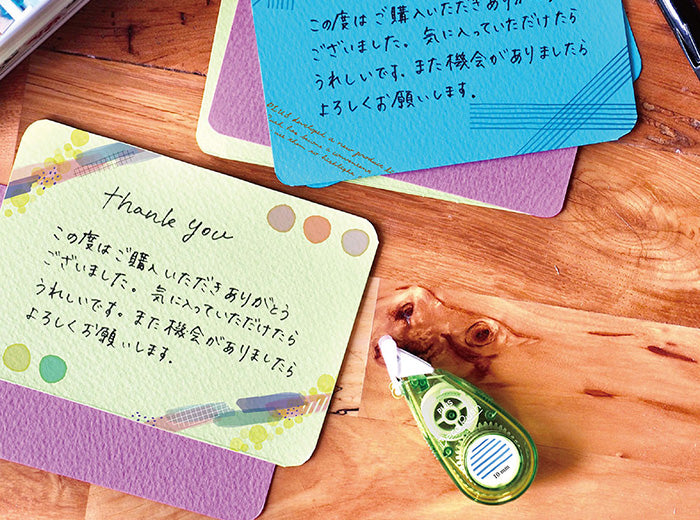 この度はご購入いただきありが
ございました。気に入っていただけたら
うれしいです。また機会がありましたら
よろしくお願いします。
PLUS developed a new
thank you
この度はご購入いただきありがとう
ございました。気に入っていただけたら
うれしいです。また機会がありましたら
よろしくお願いします。
PLUS
10 mm